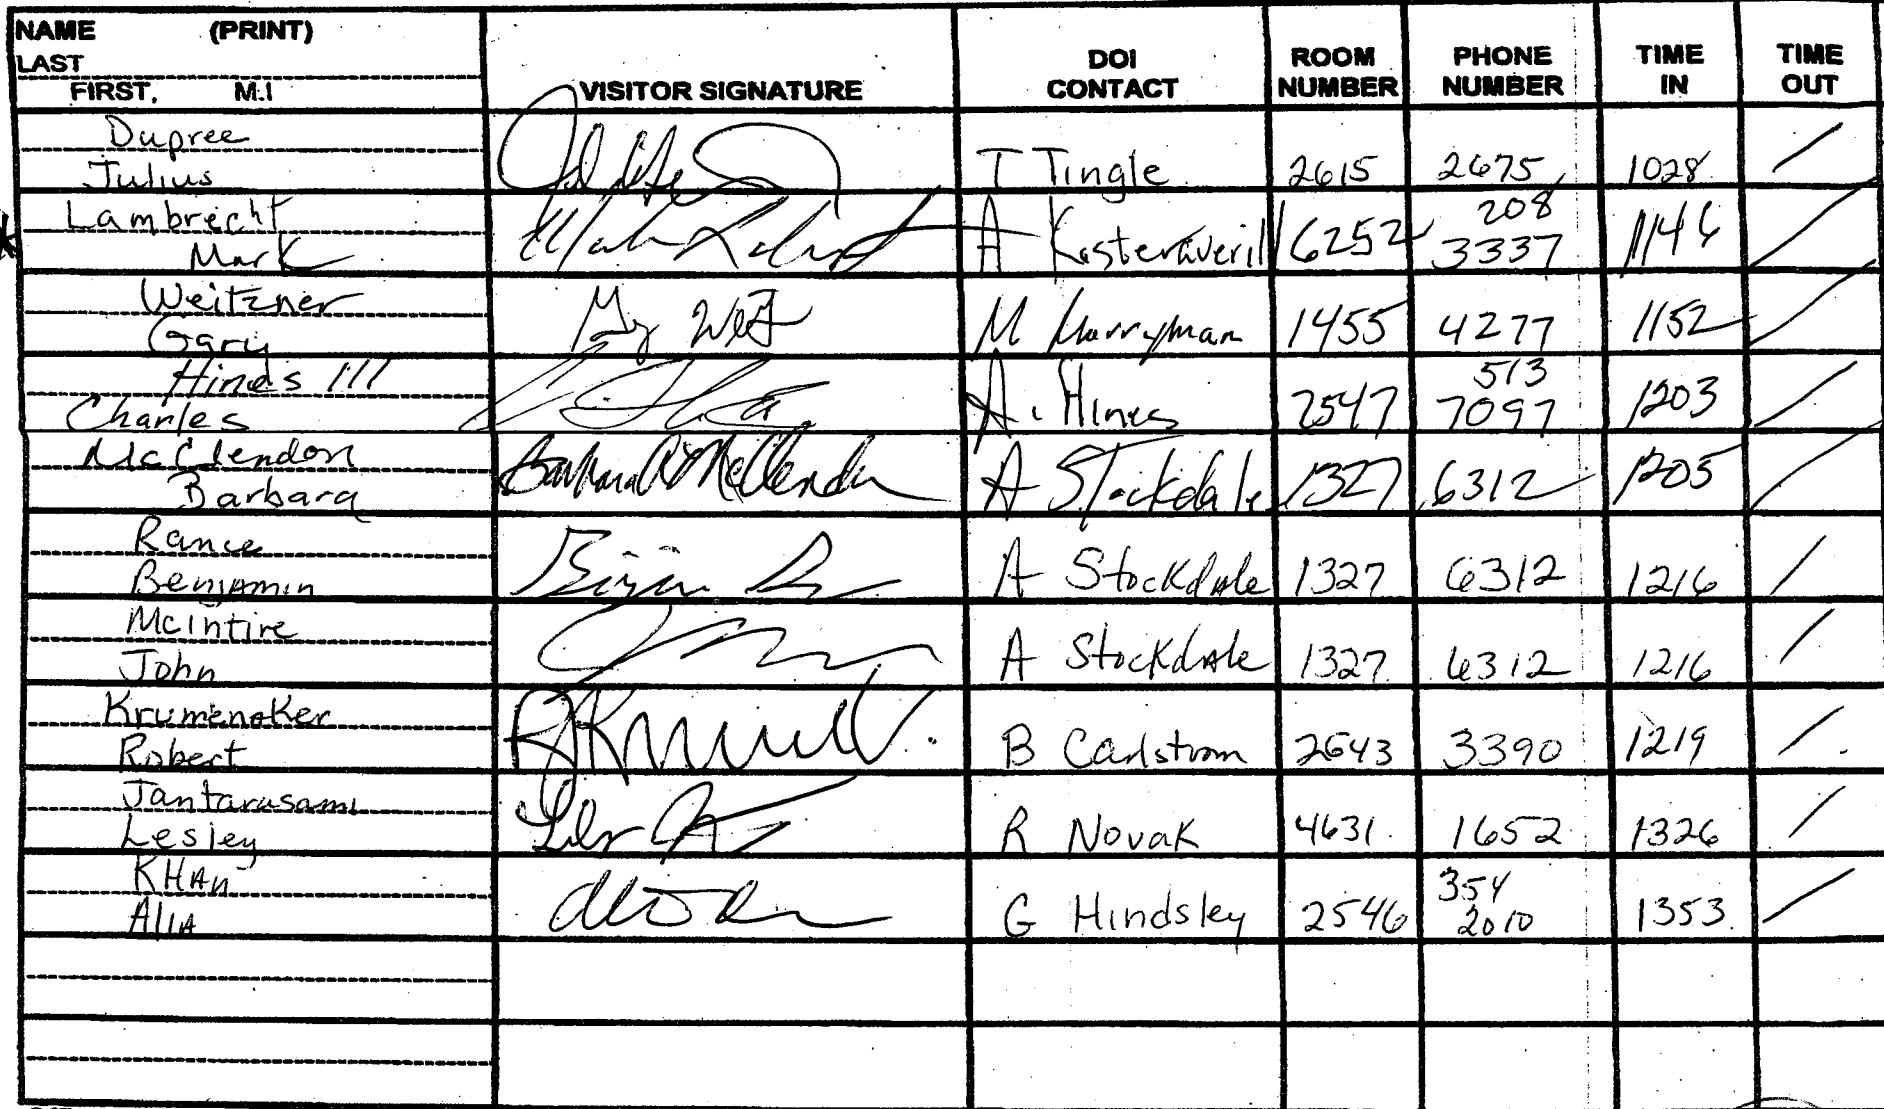 NAME (PRINT)
LAST
FIRST, M.I
VISITOR SIGNATURE
DOI CONTACT
ROOM NUMBER
PHONE NUMBER
TIME IN
TIME OUT
Dupree
Julius
T Tingle 2615 2675 1028 /
Lambrecht
Mark
A 6252 208 3337 1146 /
Weitzner
Gary
M 1455 4277 1152 /
Hinds III
Charles
A. Hines 2547 513 7097 1203 /
McClendon
Barbara
A Stockdale 1327 6312 1205 /
Rance
Benjamin
A Stockdale 1327 6312 1216 /
McIntire
John
A Stockdale 1327 6312 1216 /
Krumenaker
Robert
B Carlstrom 2643 3390 1219 /
Jantarasami
Lesley
R Novak 4631 1652 1326 /
KHAn
AliA
G Hindsley 2546 354 2010 1353 /